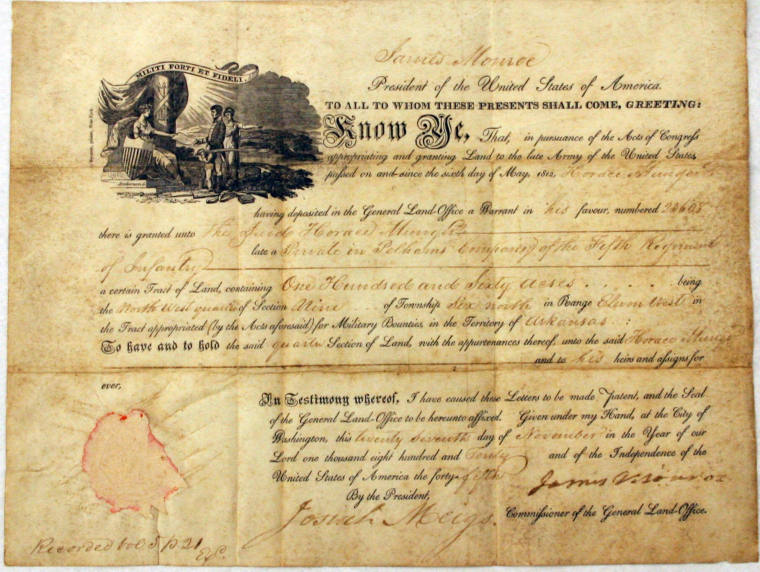 MILITI FORTI ET FIDELI.
James Monroe
President of the United States of America.
TO ALL TO WHOM THESE PRESENTS SHALL COME, GREETING:
Know Ye, That, in pursuance of the Acts of Congress
appropriating and granting Land to the late Army of the United States,
passed on and since the sixth day of May, 1812, Horace
having deposited in the General Land-Office a Warrant in his favour, numbered
there is granted unto the said Horace
late a Private in Pelhams Company of the Fifth Regiment
of Infantry
a certain Tract of Land, containing One Hundred and Sixty Acres being
the North West quarter of Section Nine of Township Six north in Range Eleven West in
the Tract appropriated (by the Acts aforesaid) for Military Bounties, in the Territory of Arkansas
To have and to hold the said quarter Section of Land, with the appurtenances thereof, unto the said Horace
and to his heirs and assigns for
ever,
In Testimony whereof, I have caused these Letters to be made Patent, and the Seal
of the General Land-Office to be hereunto affixed. Given under my Hand, at the City of
Washington, this twenty seventh day of November in the Year of our
Lord one thousand eight hundred and twenty and of the Independence of the
United States of America the forty-fifth
James Monroe
By the President,
Josiah Meigs. Commissioner of the General Land-Office.
Recorded vol 5 p 21